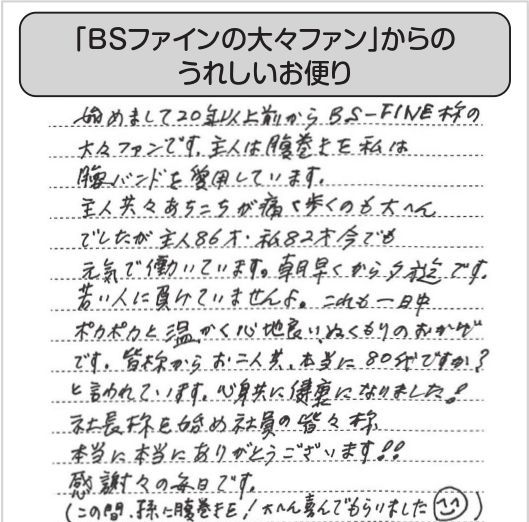 「BSファインの大々ファン」からの
うれしいお便り
始めまして20年以上前からBS-FINE様の
大々ファンです。主人は腹巻きを私は
腹バンドを愛用しています。
主人共々あちこちが痛く歩くのも大へん
でしたが主人86才・私82才今でも
元気で働いています。朝早くから夕迄です。
若い人に負けていませんよ。これも一日中
ポカポカと温かく心地良いぬくもりのおかげ
です。皆様からお二人共、本当に80代ですか?
と言われています。心身共に健康になりました!
社長様を始め社員の皆々様
本当に本当にありがとうございます!!
感謝々の毎日です。
(この間、孫に腹巻きを!大へん喜んでもらいました